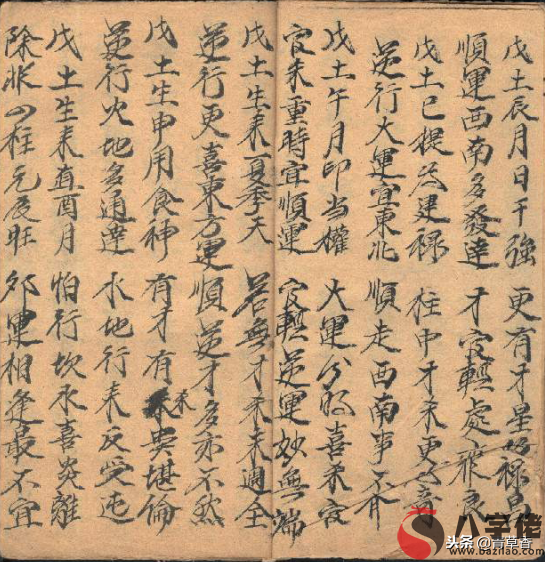 戊土辰月日干強 更有才星好祿
順運西南多發達 才官輕處 良
戊土巳提为建祿 柱中才 更为奇
逆行大運宜東北 順走西南事不
戊土午月印当權 大運分明喜 官
官 重時宜順運 官輕逆運妙無端
戊土生来夏季天 若無才 未週全
逆行更喜東方運 順逆才多亦不然
戊土生申用食神 有才有 貴堪倫
逆行火地多通達 水地行来反受迍
戊土生来直酉月 怕行坎水喜炎離
除非四柱元辰旺 邜運相逢最不宜
八字佬
头条 @青草香
www.bazilao.com